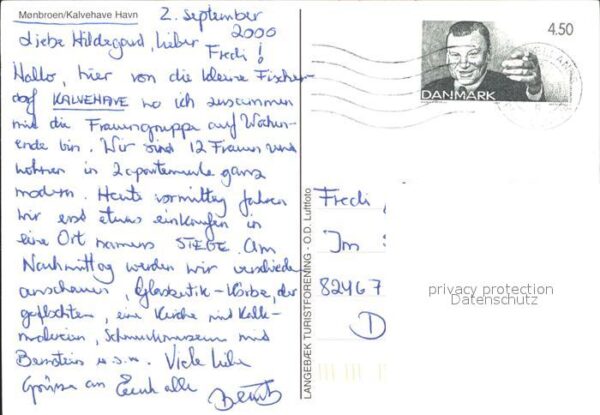 Mønbroen/Kalvehave Havn
2. September
2000
Liebe Hildegard, lieber
Fredi!
Hallo, hier von die kleine Fischer-
dorf KALVEHAVE wo ich zusammen
mit die Frauengruppe auf Wochen-
ende bin. Wir sind 12 Frauen und
wohnen in 2 apartemente ganz
modern. Heute vormittag fahren
wir erst etwas einkaufen in
eine Ort namens STEGE. Am
Nachmittag werden wir verschiedene
anschauen, Glasbutik - Körbe, der
geflochten, eine Kirche mit Kalk-
malereien, Schmuckmuseum mit
Bernstein u.s.w. Viele liebe
Grüsse an Euch alle
4.50
DANMARK
LANGEBÆK TURISTFORENING - O.D. Luftfoto
Fredi
Im
82467
D
privacy protection
Datenschutz